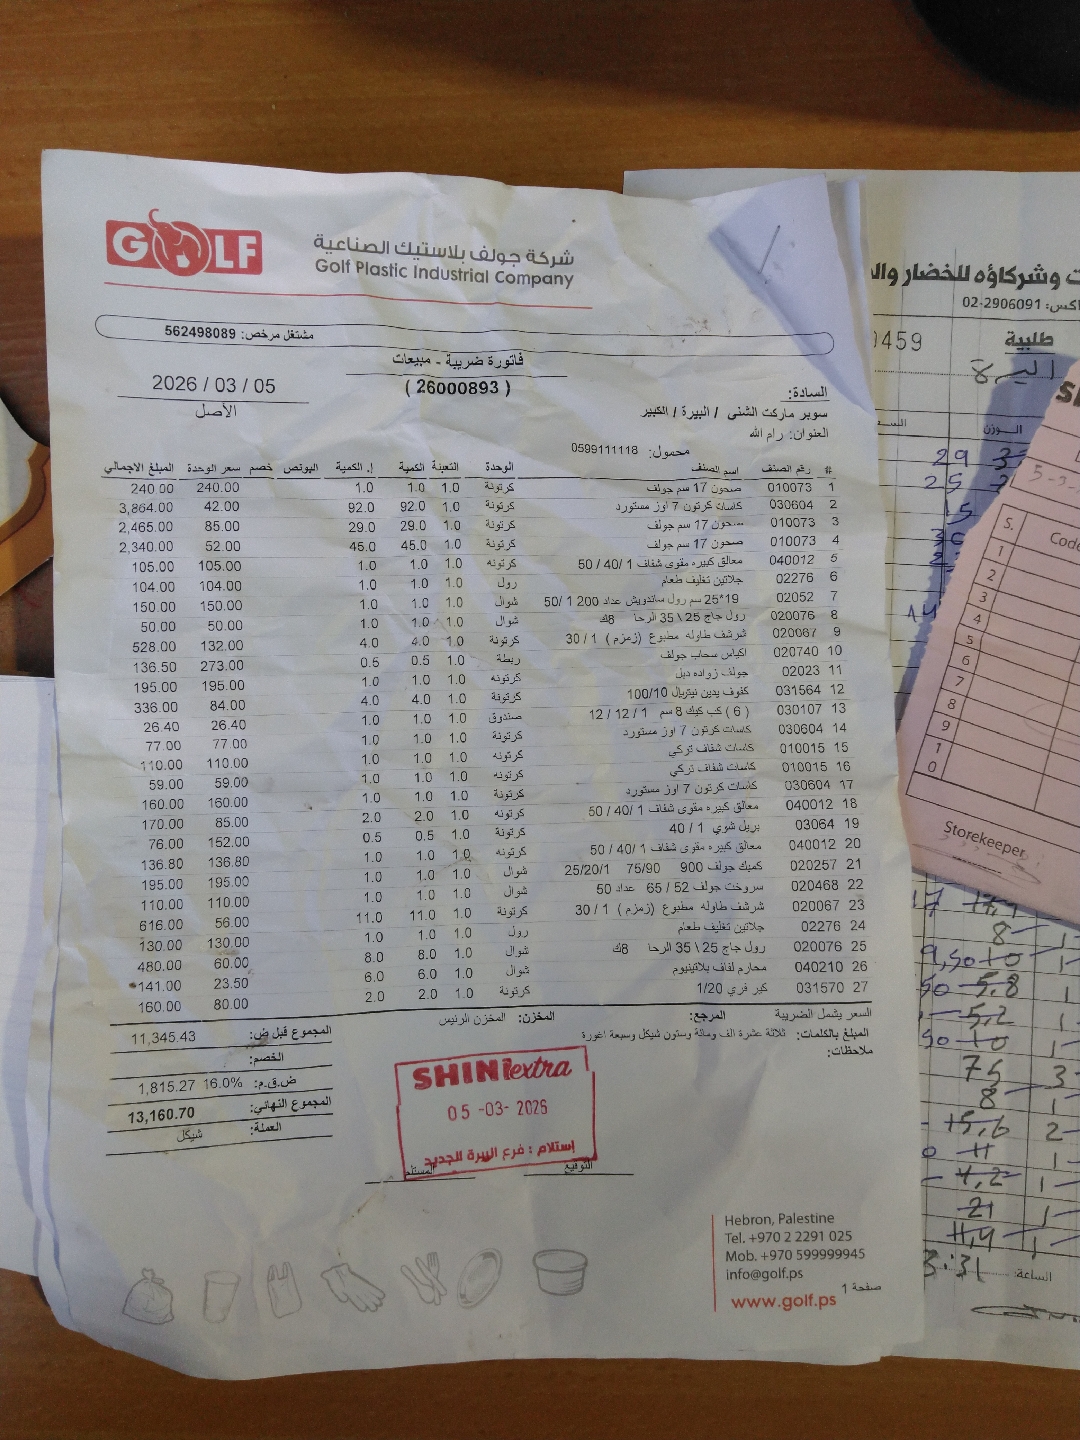 GOLF
شركة جولف بلاستيك الصناعية
Golf Plastic Industrial Company
مشتغل مرخص: 562498089
فاتورة ضريبة - مبيعات
( 26000893 )
2026 / 03 / 05
الأصل
السادة:
سوبر ماركت الشني / البيرة / الكبير
العنوان: رام الله
محمول: 0599111118
# رقم الصنف اسم الصنف الوحدة التعبئة الكمية إ. الكمية البونص خصم سعر الوحدة المبلغ الاجمالي
1 010073 صحون 17 سم جولف كرتونة 1.0 1.0 1.0 240.00 240.00
2 030604 كاسات كرتون 7 اوز مستورد كرتونة 1.0 92.0 92.0 42.00 3,864.00
3 010073 صحون 17 سم جولف كرتونة 1.0 29.0 29.0 85.00 2,465.00
4 010073 صحون 17 سم جولف كرتونة 1.0 45.0 45.0 52.00 2,340.00
5 040012 معالق كبيره مقوى شفاف 1/ 40 / 50 كرتونه 1.0 1.0 1.0 105.00 105.00
6 02276 جلاتين تغليف طعام رول 1.0 1.0 1.0 104.00 104.00
7 02052 19*25 سم رول ساندويش عداد 200 1 /50 شوال 1.0 1.0 1.0 150.00 150.00
8 020076 رول جاج 25 \ 35 الرحا 8ك شوال 1.0 1.0 1.0 50.00 50.00
9 020067 شرشف طاوله مطبوع (زمزم ) 1 / 30 كرتونة 1.0 4.0 4.0 132.00 528.00
10 020740 اكياس سحاب جولف ربطة 1.0 0.5 0.5 273.00 136.50
11 02023 جولف زواده دبل كرتونه 1.0 1.0 1.0 195.00 195.00
12 031564 كفوف يدين نيتريال 100/10 كرتونة 1.0 4.0 4.0 84.00 336.00
13 030107 ( 6 ) كب كيك 8 سم 1 / 12 / 12 صندوق 1.0 1.0 1.0 26.40 26.40
14 030604 كاسات كرتون 7 اوز مستورد كرتونة 1.0 1.0 1.0 77.00 77.00
15 010015 كاسات شفاف تركي كرتونه 1.0 1.0 1.0 110.00 110.00
16 010015 كاسات شفاف تركي كرتونه 1.0 1.0 1.0 59.00 59.00
17 030604 كاسات كرتون 7 اوز مستورد كرتونة 1.0 1.0 1.0 160.00 160.00
18 040012 معالق كبيره مقوى شفاف 1/ 40 / 50 كرتونه 1.0 2.0 2.0 85.00 170.00
19 03064 بربل شوي 1 / 40 كرتونة 1.0 0.5 0.5 152.00 76.00
20 040012 معالق كبيره مقوى شفاف 1/ 40 / 50 كرتونه 1.0 1.0 1.0 136.80 136.80
21 020257 كمبك جولف 900 75/90 25/20/1 شوال 1.0 1.0 1.0 195.00 195.00
22 020468 سروخت جولف 52 / 65 عداد 50 شوال 1.0 1.0 1.0 110.00 110.00
23 020067 شرشف طاوله مطبوع (زمزم ) 1 / 30 كرتونة 1.0 11.0 11.0 56.00 616.00
24 02276 جلاتين تغليف طعام رول 1.0 1.0 1.0 130.00 130.00
25 020076 رول جاج 25 \ 35 الرحا 8ك شوال 1.0 8.0 8.0 60.00 480.00
26 040210 محارم لفاف بلاتينيوم شوال 1.0 6.0 6.0 23.50 141.00
27 031570 كير فري 1/20 كرتونة 1.0 2.0 2.0 80.00 160.00
السعر يشمل الضريبة المرجع: المخزن: المخزن الرئيس
المبلغ بالكلمات: ثلاثة عشرة الف ومائة وستون شيكل وسبعة اغورة
ملاحظات:
المجموع قبل ض: 11,345.43
الخصم:
ض.ق.م: 16.0% 1,815.27
المجموع النهائي: 13,160.70
العملة: شيكل
SHINI extra
05 -03- 2026
إستلام : فرع البيرة الجديد
المستلم
التوقيع
Hebron, Palestine
Tel. +970 2 2291 025
Mob. +970 599999945
info@golf.ps
www.golf.ps
صفحة 1
ت وشركاؤه للخضار وال
اكس: 02-2906091
طلبية
0459
البيرة
الوزن
29
25
15
S. Code
1
2
3
4
5
6
7
8
9
10
Storekeeper
8
9,50 10 1
50 5,8 1
5,2
50 10 1
75 3
8 1
15,6 2
11 1
4,2 1
21 1
11,4 1
الساعة: 3:31